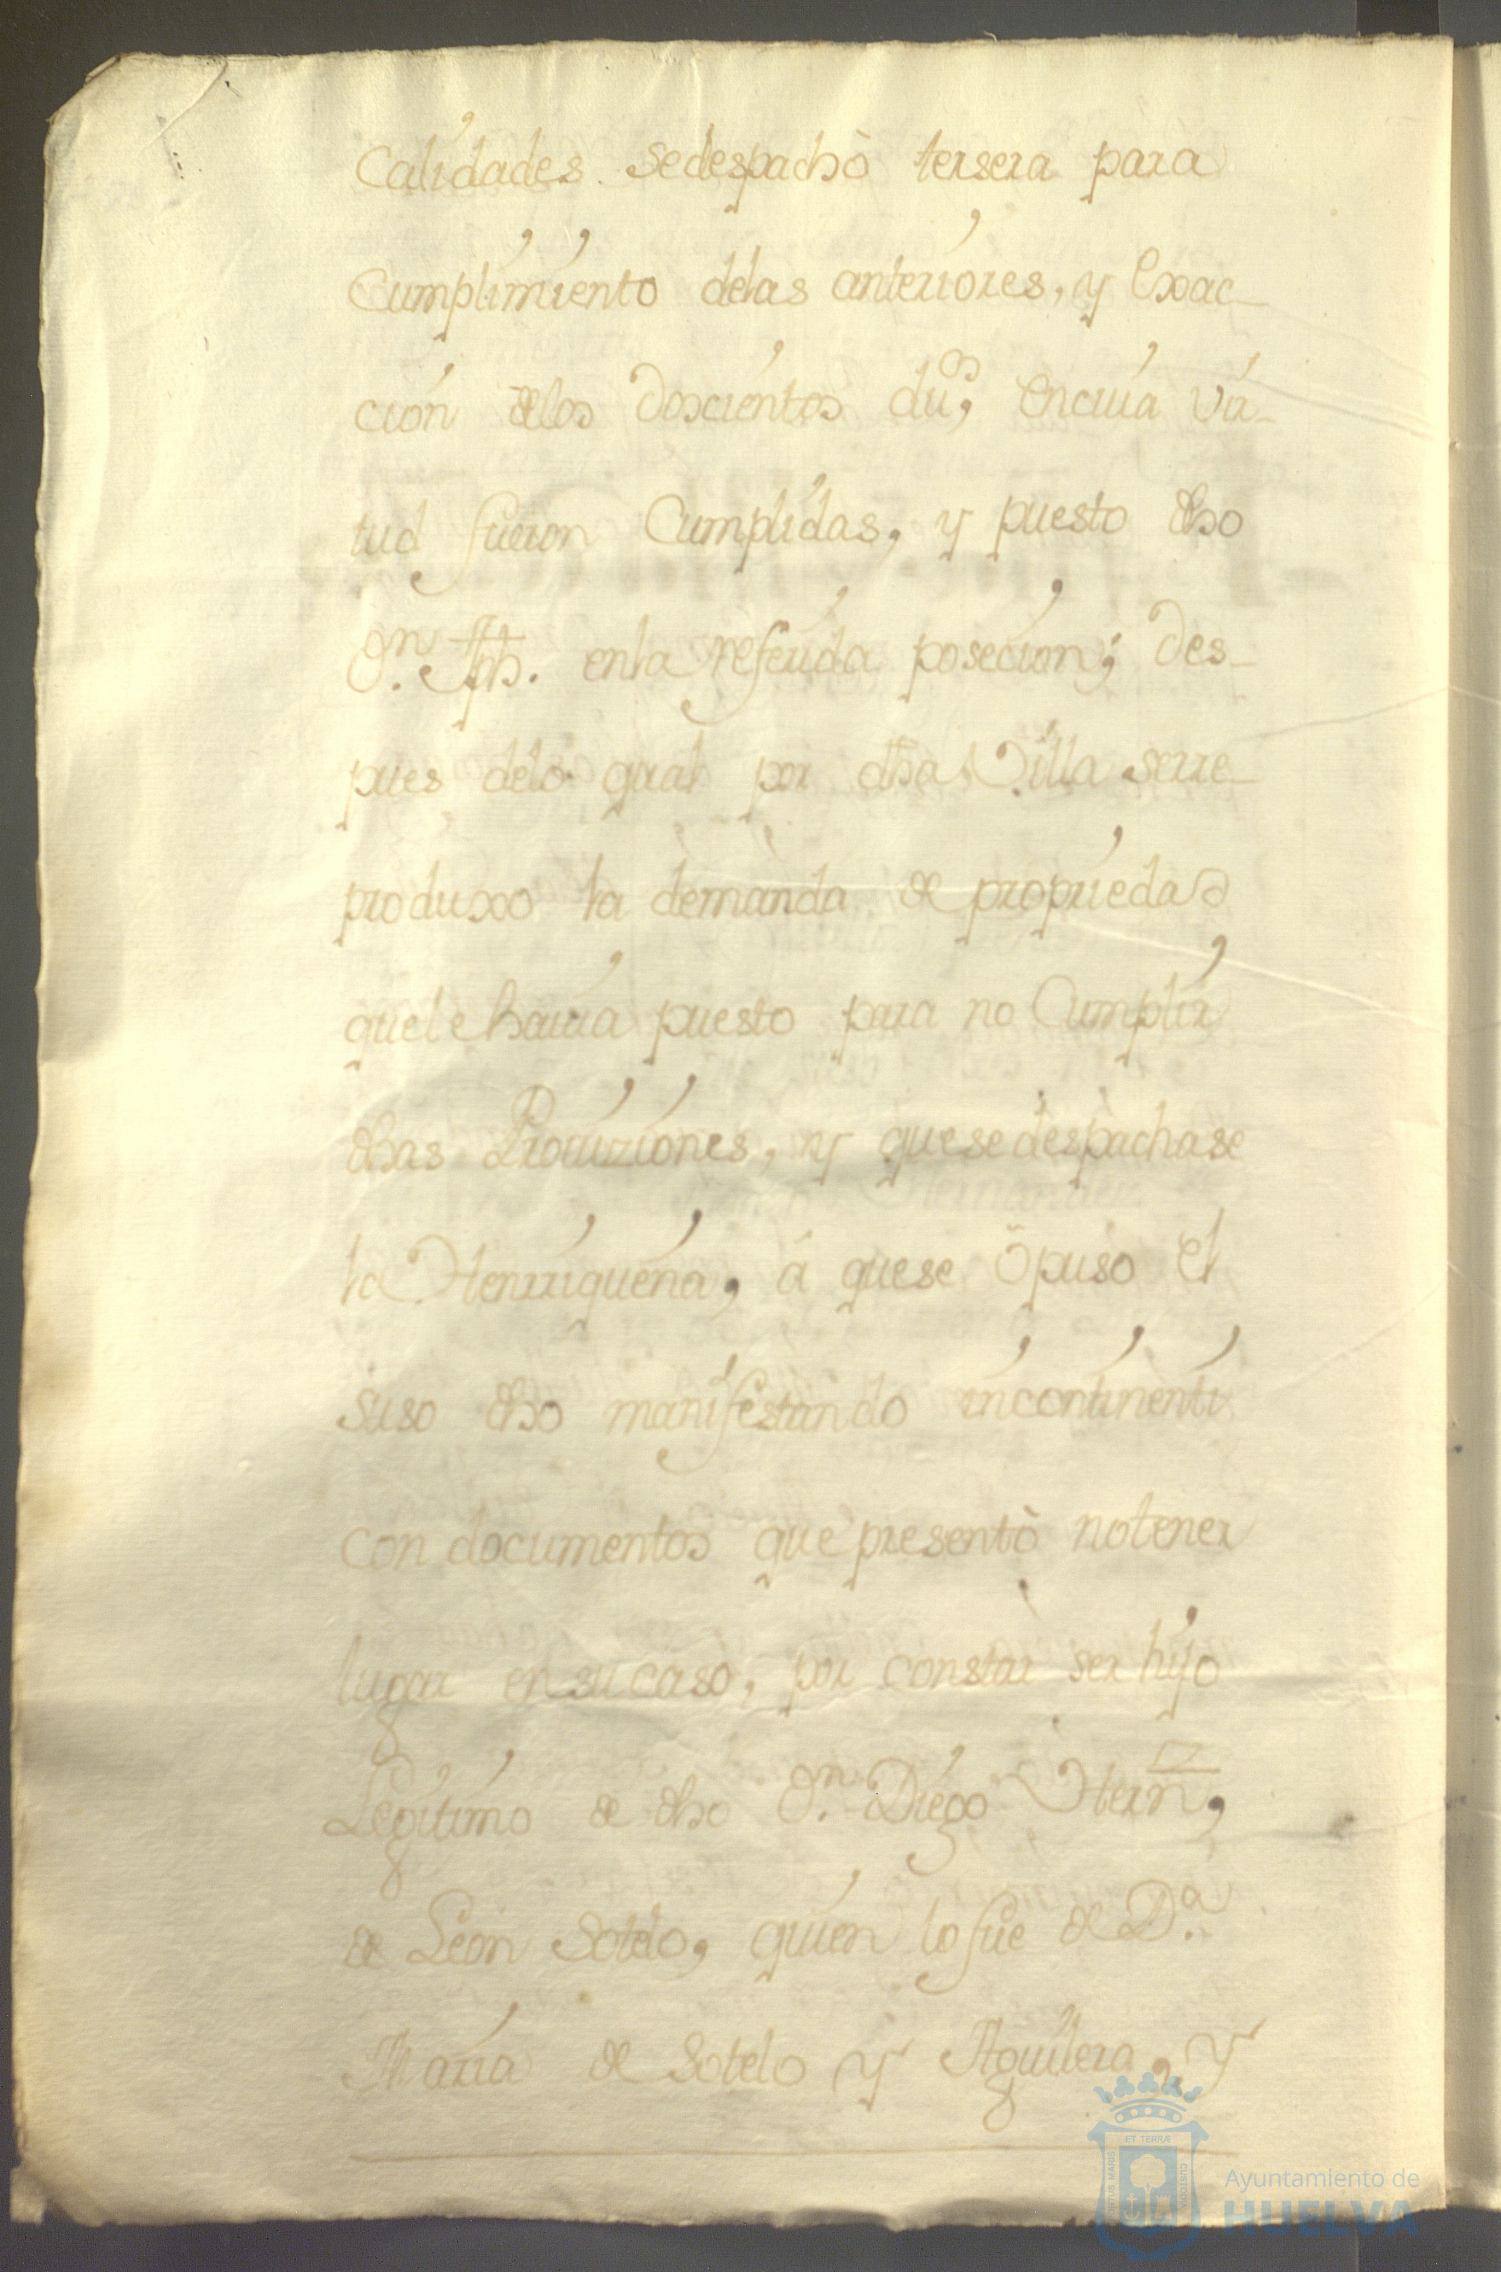 Calidades. sedespachò tersera para
Cumplimiento delas anteriores, y Exac-
cion delos Doscientos du.os, Encuia vir-
tud fueron Cumplidas, y puesto dho
Dn. Jph. enla referida posecion; Des-
pues delo qual por dha Villa serre-
produxo la demanda de propriedad
quele havia puesto para no Cumplir
dhas Provizíones, y quesedespachase
la Henrriqueña, á quese opuso el
suso dho manifestando incontinenti
con documentos que presentò notener
lugar ensucaso, por constar ser hijo
Legitimo de dho Dn. Diego Hernz,
de León Sotelo, quien lo fue de Da.
María de Sotelo y Aguilera, y
ET TERRÆ
PORTUS MARIS
CUSTODIA
Ayuntamiento de
HUELVA